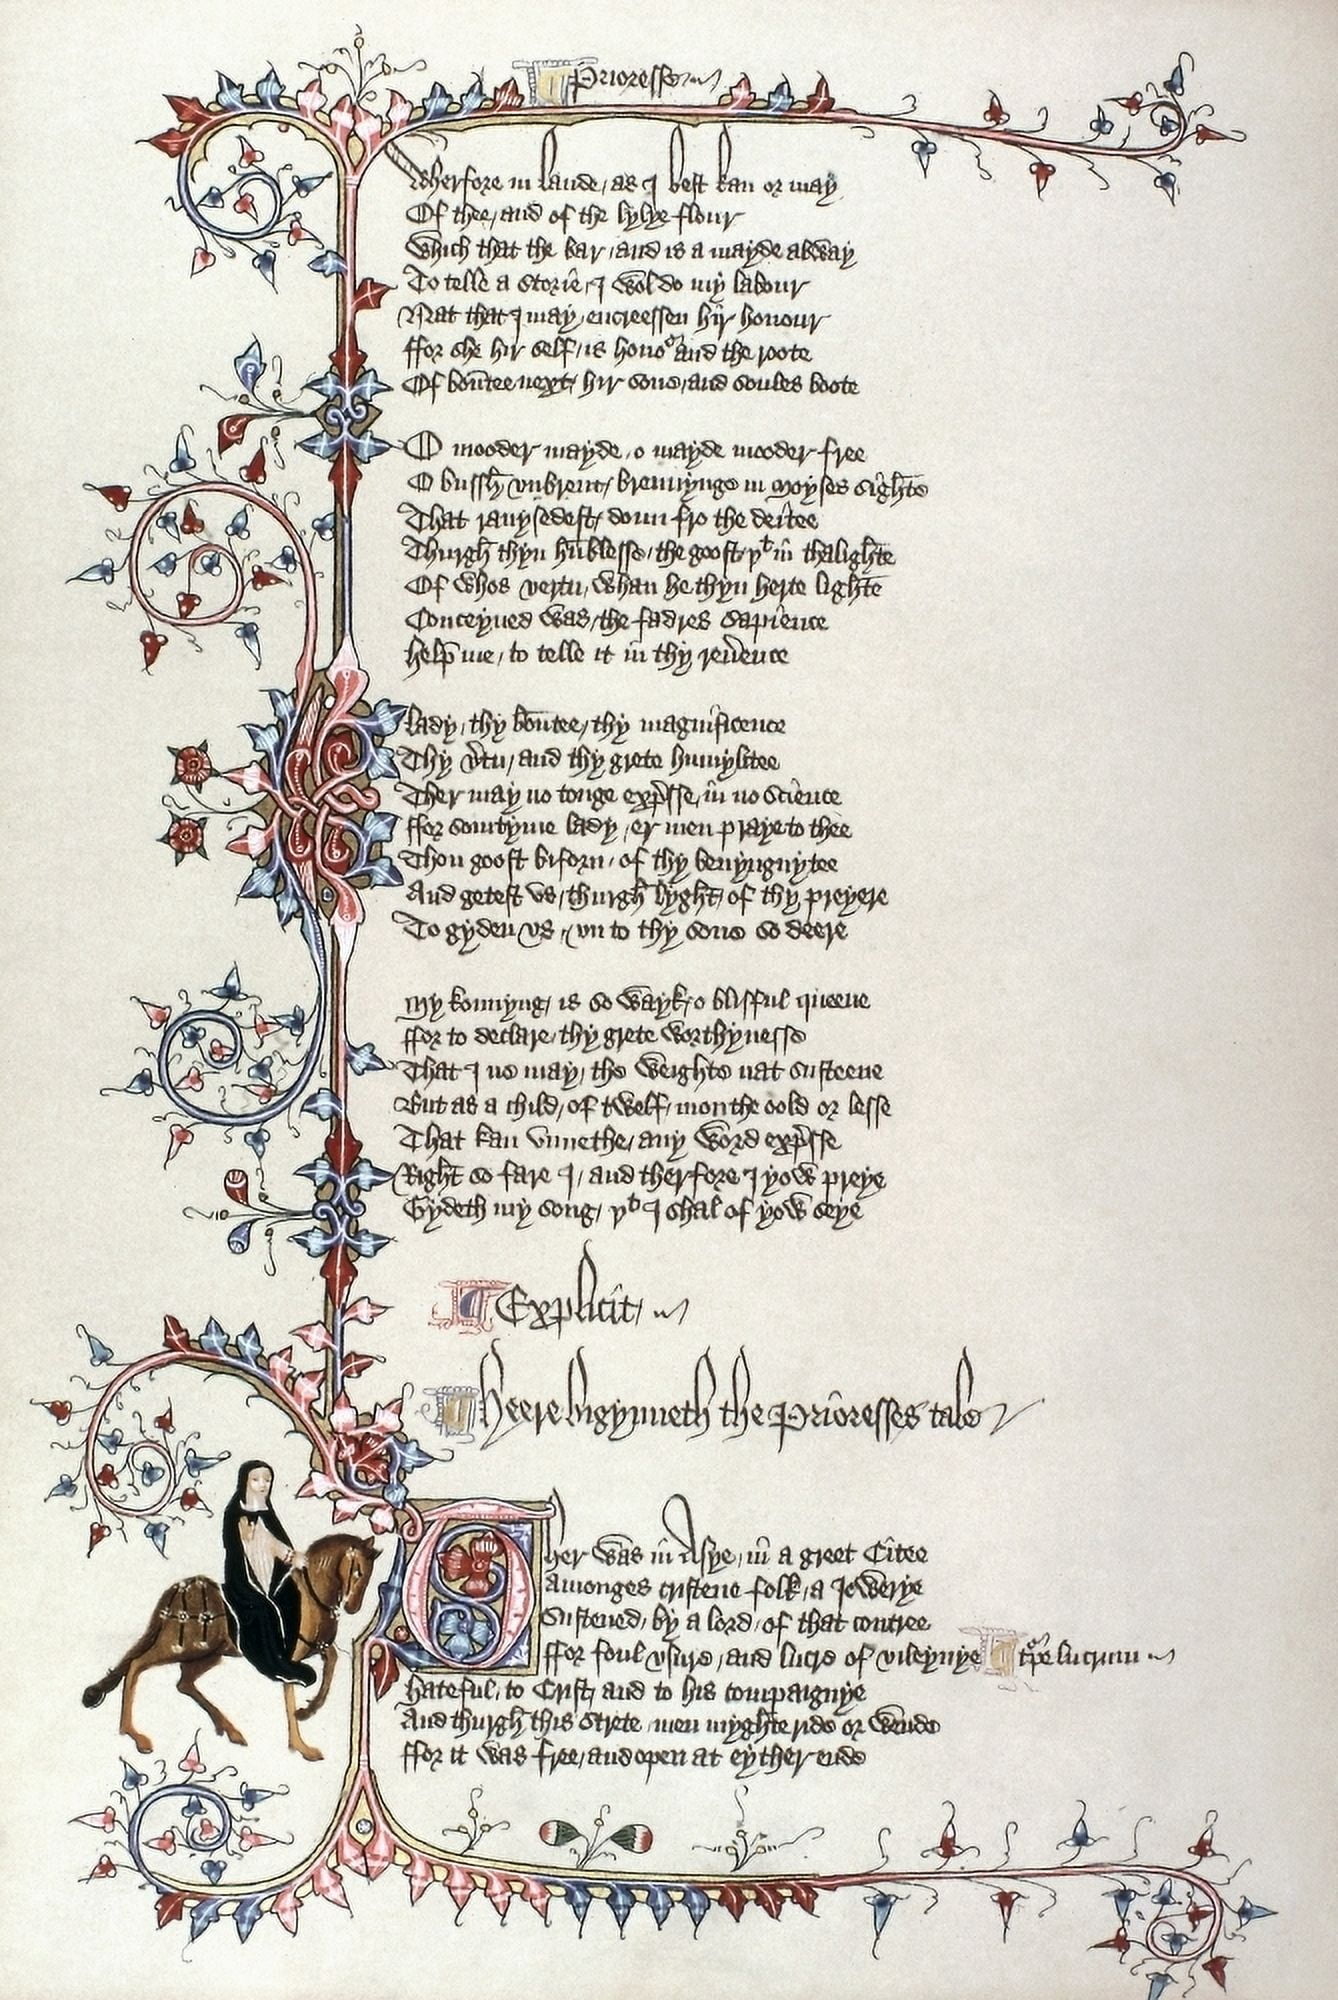 Prioresse
Wherfore in laude, as I best kan or may
Of thee, and of the lylye flour
Which that the bar, and is a mayde alway
To telle a storie, I wol do my labour
Nat that I may, encreessen hir honour
ffor she hir self, is honoᵘʳ and the roote
Of bountee next, hir sone, and soules boote
O mooder mayde, o mayde mooder free
O bussh vnbrent, brennynge in Moyses sighte
That rauysedest, doun fro the deitee
Thurgh thyn hūblesse, the goost, yᵗ in thalighte
Of whos vertu, whan he thyn herte lighte
Conceyued was, the fadres sapience
Help me, to telle it in thy reũence
Lady, thy boūtee, thy magnificence
Thy ũtu, and thy grete humylitee
Ther may no tonge exp̄sse, in no science
ffor somtyme lady, er men praye to thee
Thou goost biforn, of thy benyngnytee
And getest vs, thurgh lyght, of thy preyere
To gyden vs, vn to thy sone so deere
My konnyng, is so wayk, o blisful queene
ffor to declare, thy grete worthynesse
That I ne may, the weighte nat susteene
But as a child, of twelf, monthe oold or lesse
That kan vnnethe, any word exp̄sse
Right so fare I, and therfore I yow preye
Gydeth my song, yᵗ I shal of yow seye
Explicit
Heere bigynneth the Prioresses tale
Ther was in Asye, in a greet Citee
Amonges cristene folk, a Jewerye
Sustened, by a lord, of that contree
ffor foul vsure, and lucre of vileynye tᵒpe lucrum
Hateful, to Crist, and to his compaignye
And thurgh this strete, men myghte ride or wende
ffor it was free, and open at eyther ende